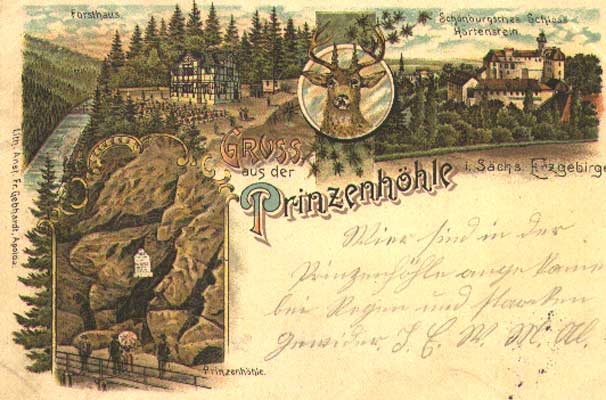 Forsthaus.
Schönburgsches Schloss
Hartenstein
Gruss
aus der
Prinzenhöhle
i. Sächs. Erzgebirge
Lith. Anst. Fr. Gebhardt, Apolda.
Prinzenhöhle.
Wier sind in der
Prinzenhöhle angekomm
bei Regen und starken
Gewider. J. E. W. M. Al.